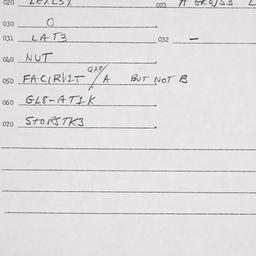 020 LEXLSX 022 A GROSS L
030 O
031 LAT3 032 -
040 NUT
050 FACIRV1T GAP/A BUT NOT B
060 GL8-AT1K
070 STORSTK3